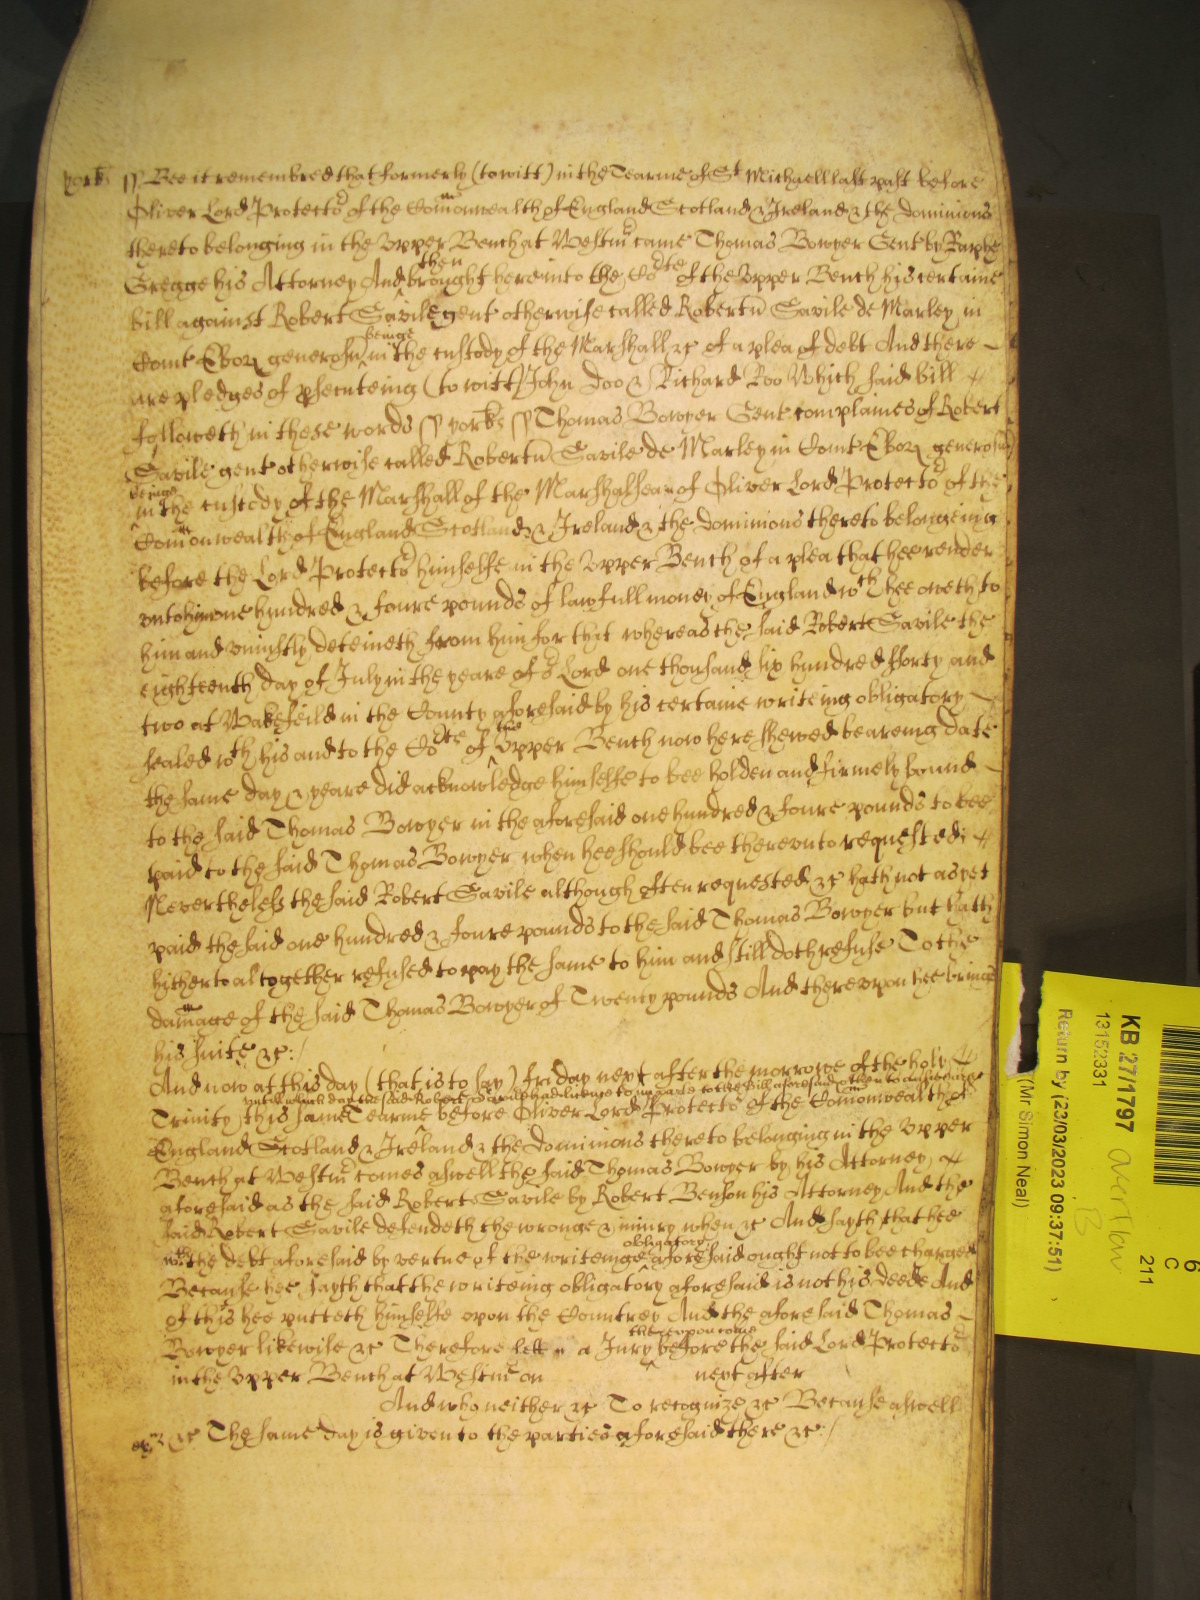 york ss Bee it remembred that formerly (to witt) in the Tearme of St Michaell last past before
Oliver Lord Protector of the Comonwealth of England Scotland & Ireland & the dominions
thereto belonging in the Upper Bench at Westm came Thomas Bowyer Gent by Raphe
Gregge his Attorney And then brought here into the Corte of the Upper Bench his certaine
bill against Robert Savile gent otherwise called Robertu Savile de Marley in
Comt Ebor generosu beinge in the custody of the Marshall &c of a plea of debt And there
are pledges of psecuteing (to witt) John Doo & Richard Roo Which said bill
followeth in these words ss york ss Thomas Bowyer Gent complaines of Robert
Savile gent otherwise called Robertu Savile de Marley in Comt Ebor generosu
beinge in the custody of the Marshall of the Marshalsea of Oliver Lord Protector of the
Comonwealth of England Scotland & Ireland & the dominions thereto belongeing
before the Lord Protector himselfe in the Upper Bench of a plea that hee render
unto him one hundred & foure pounds of lawfull money of England wch hee oweth to
him and uniustly deteineth from him for that whereas the said Robert Savile the
eighteenth day of July in the yeare of or Lord one thousand six hundred fforty and
two at Wakefeild in the County aforesaid by his certaine writeing obligatory
sealed wth his and to the Corte of the Upper Bench now here shewed beareing date
the same day & yeare did acknowledge himselfe to bee holden and firmely bound
to the said Thomas Bowyer in the aforesaid one hundred & foure pounds to bee
paid to the said Thomas Bowyer when hee should bee thereunto requested
Neverthelesse the said Robert Savile although often requested &c hath not as yet
paid the said one hundred & foure pounds to the said Thomas Bowyer but hath
hitherto altogether refused to pay the same to him and still doth refuse To the
damage of the said Thomas Bowyer of Twenty pounds And thereupon hee brings
his suite &c:/
And now at this day (that is to say) Friday next after the morrowe of the holy
untill which day the said Robert had licence to imparle to the Bill aforesaid & then to answeare
Trinity this same Tearme before Oliver Lord Protector of the Comonwealth of
England Scotland & Ireland & the dominions thereto belonging in the Upper
Bench at Westm comes aswell the said Thomas Bowyer by his Attorney
aforesaid as the said Robert Savile by Robert Benson his Attorney And the
said Robert Savile defendeth the wronge & iniury when &c And sayth that hee
wth the debt aforesaid by vertue of the writeinge obligatory aforesaid ought not to bee charged
Because hee sayth that the writeing obligatory aforesaid is not his deede And
of this hee putteth himselfe upon the Countrey And the aforesaid Thomas
Bowyer likewise &c Therefore lett a Jury thereupon come before the said Lord Protector
in the Upper Bench at Westm on next after
And who neither &c To recognize &c Because aswell
&c The same day is given to the parties aforesaid there &c:/
KB 27/1797
13152331
Return by (23/03/2023 09:37:51)
(Mr Simon Neal)
overflow
B
6
C
211